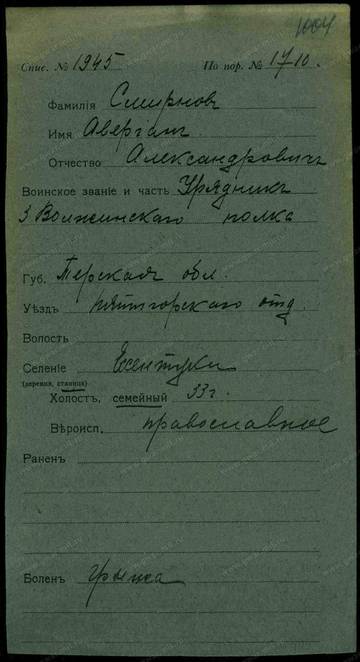 1004
Спис. № 1945 По пор. № 1710.
Фамилія Смирновъ
Имя Аверіанъ.
Отчество Александровичъ
Воинское званіе и часть Урядникъ
3 Волжинскаго полка
Губ. Терская обл.
Уѣздъ пятигорскаго отд.
Волость
Селеніе Есентуки
(деревня, станица)
Холостъ, семейный 33 г.
Вѣроисп. православное
Раненъ
Боленъ грыжа